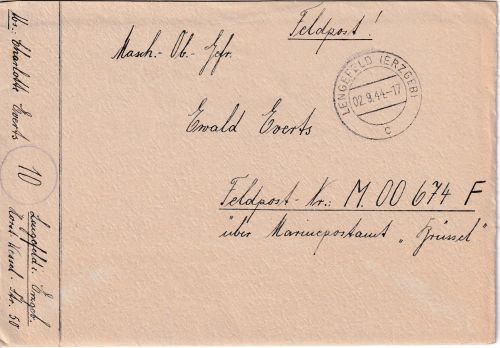 Feldpost!
Masch.- Ob.- Gfr.
LENGEFELD (ERZGEB)
02.9.44.-17
c
Ewald Everts
Feldpost-Nr.: M. 00 674 F
über Marinepostamt „Brüssel"
Charlotte Everts
10
Lengefeld i. Erzgeb.
Horst Wessel-Str. 50